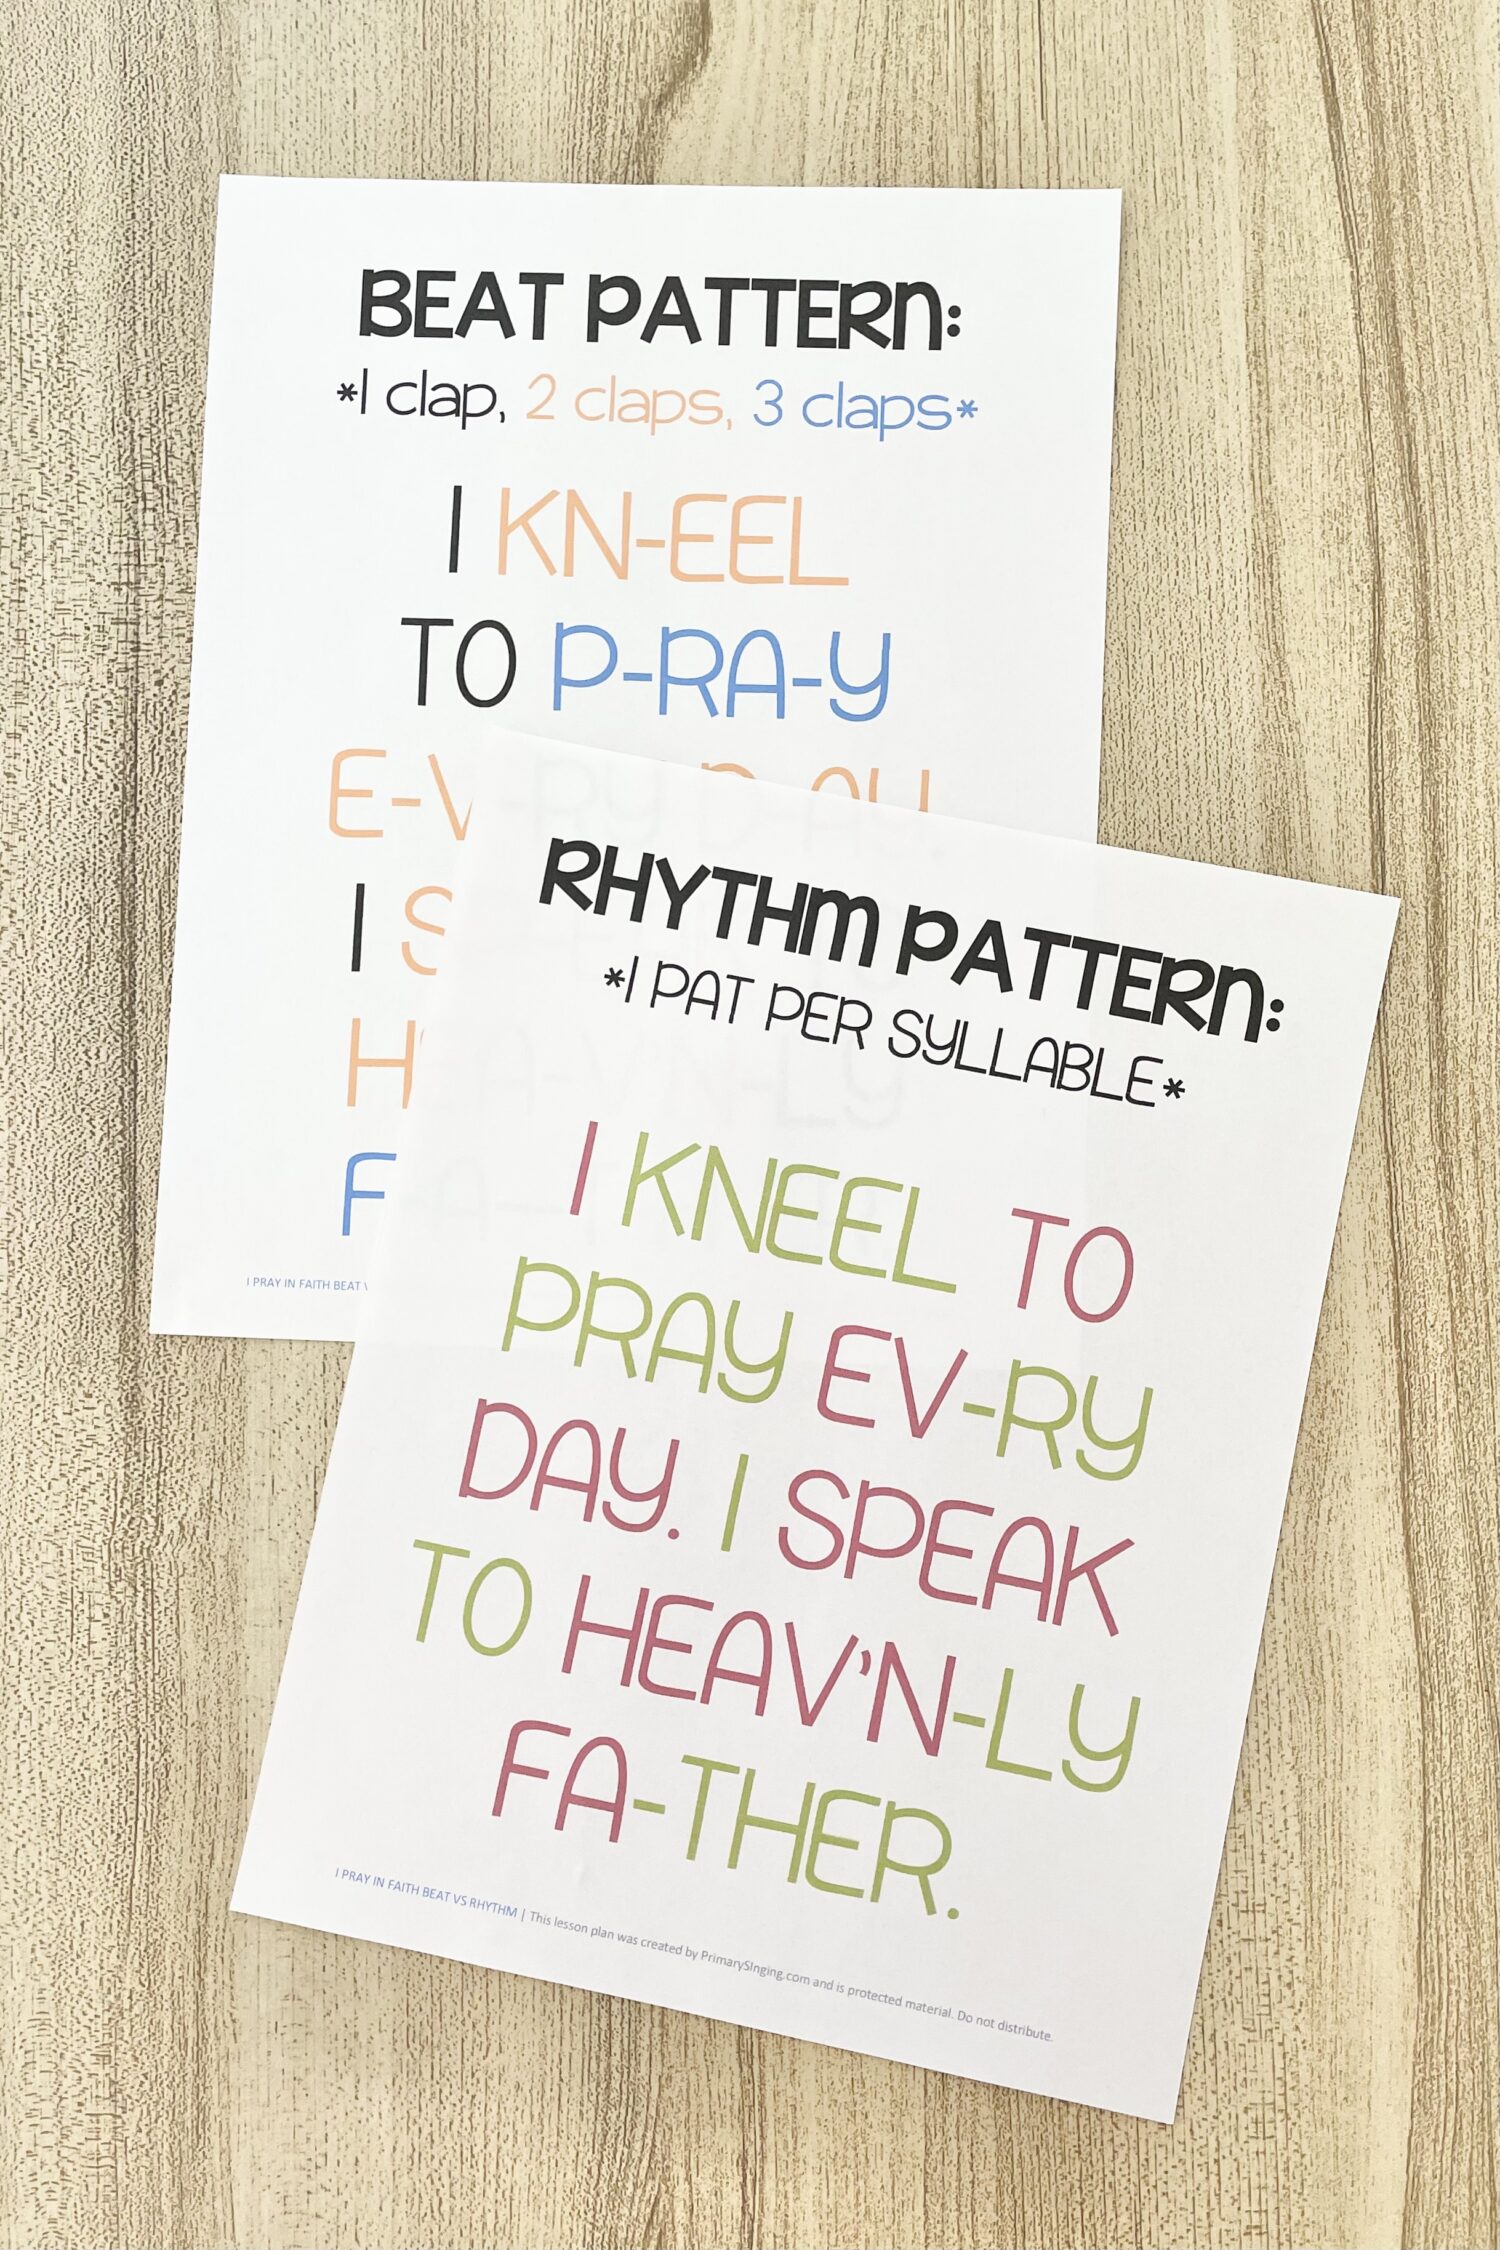 BEAT PATTERN:
*1 clap, 2 claps, 3 claps*
I KN-EEL
TO P-RA-Y
E-V-RY D-AY.
I S
H'
F
I PRAY IN FAITH BEAT V
RHYTHM PATTERN:
*1 PAT PER SYLLABLE*
I KNEEL TO
PRAY EV-RY
DAY. I SPEAK
TO HEAV'N-LY
FA-THER.
I PRAY IN FAITH BEAT VS RHYTHM | This lesson plan was created by PrimarySInging.com and is protected material. Do not distribute.